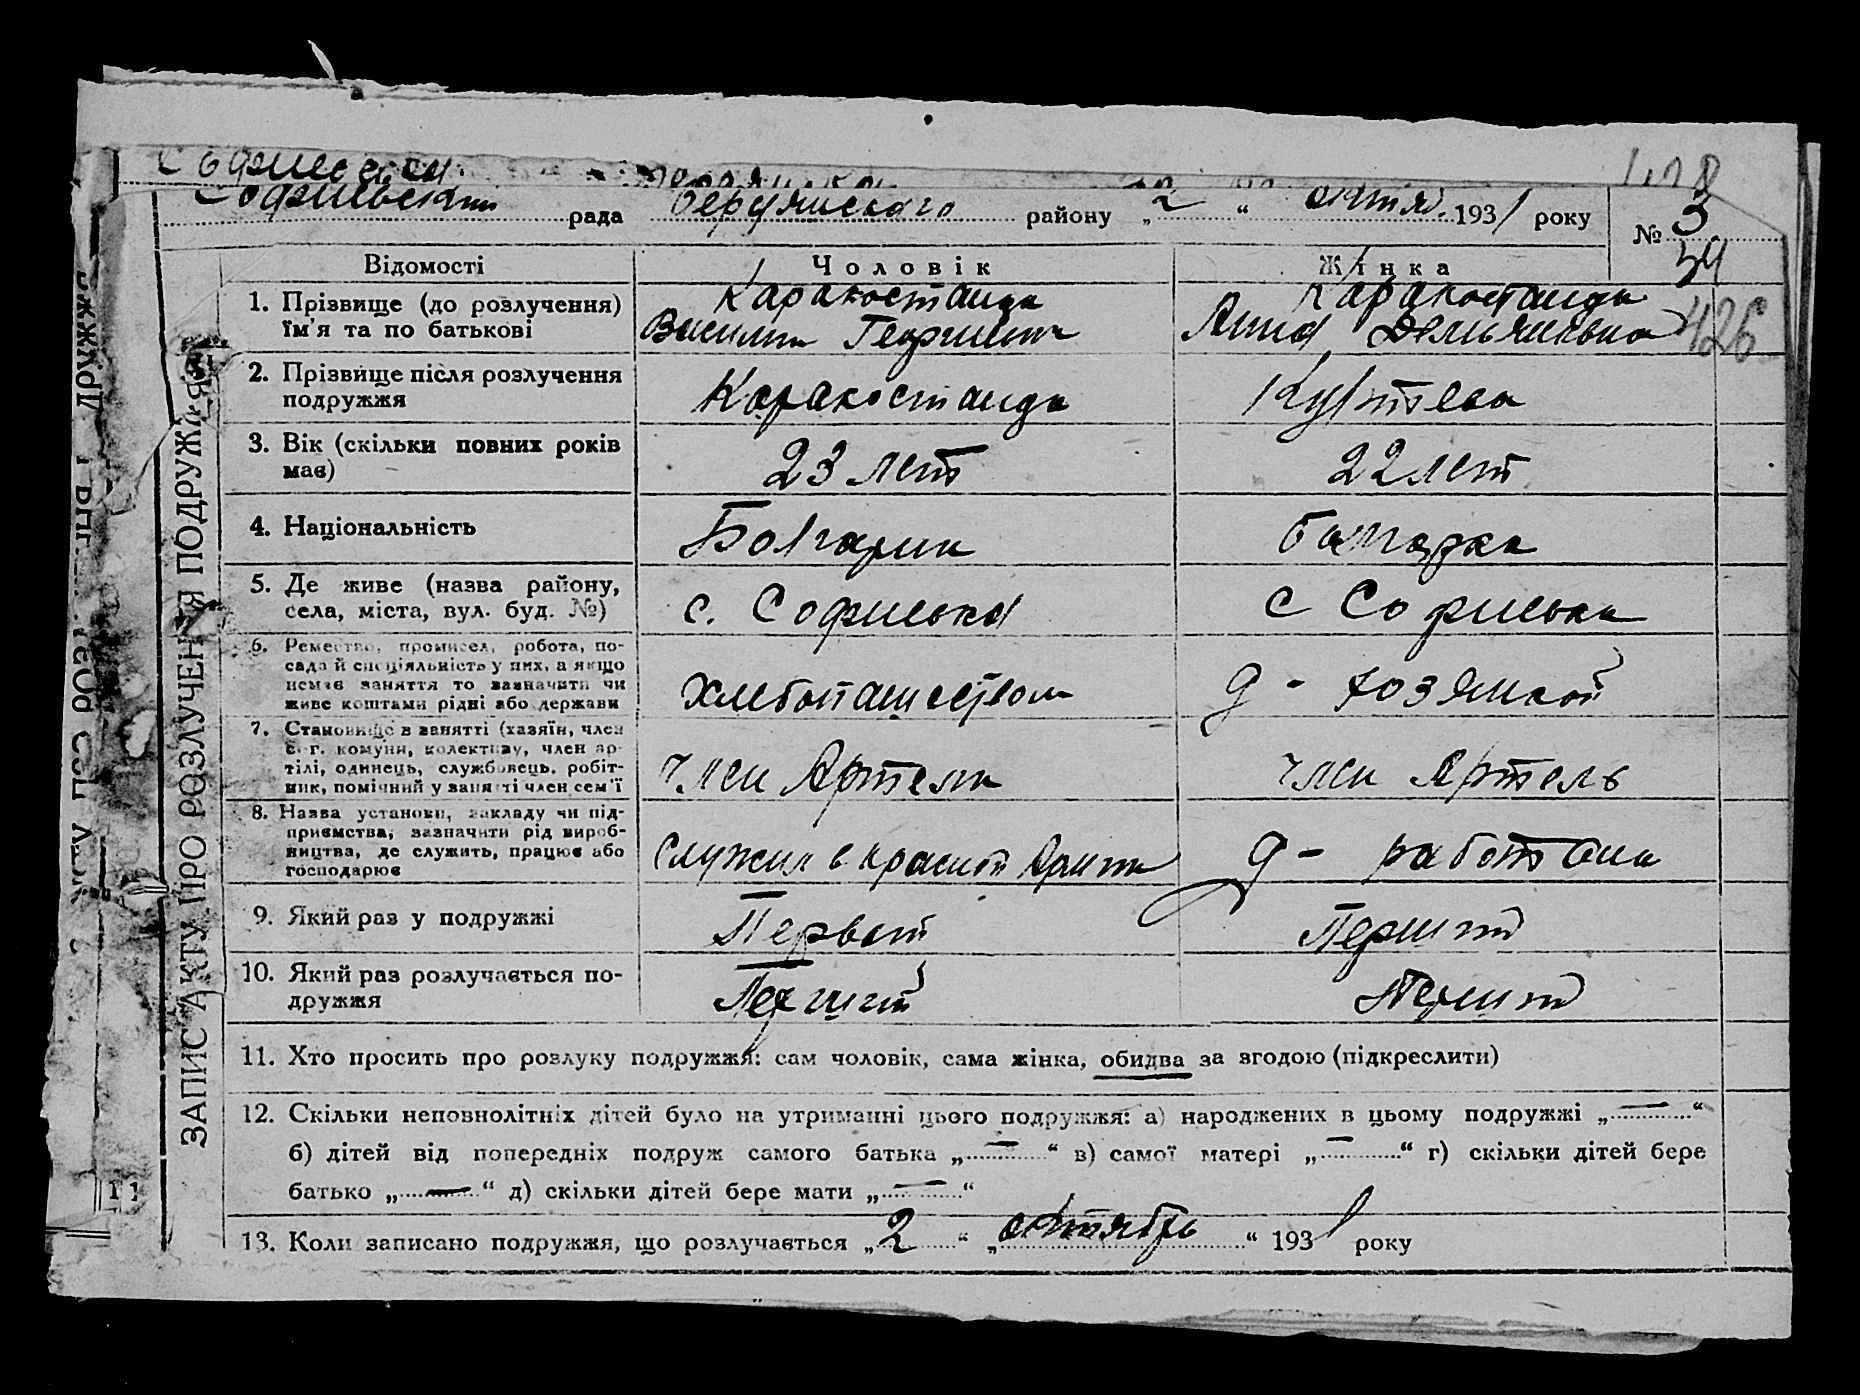 428
Софиевский рада Бердянского району „2“ октяб. 1931 року № 3
34
Відомості Чоловік Жінка
1. Прізвище (до розлучення) Каракостанди Каракостанди
їм'я та по батькові Василий Георгиевич Анна Демьяновна 426
2. Прізвище після розлучення
подружжя Каракостанди Куртева
3. Вік (скільки повних років
має) 23 лет 22 лет
4. Національність Болгарин болгарка
5. Де живе (назва району,
села, міста, вул. буд. №) с. Софиевка с Софиевка
6. Ремество, промисел, робота, по-
сада й спеціяльність у них, а якщо
немає заняття то зазначити чи
живе коштами рідні або держави Хлебопашеством д- хозяйкой
7. Становище в занятті (хазяїн, член
с.-г. комуни, колективу, член ар-
тілі, одинець, службовець, робіт-
ник, помічний у занятті член сем'ї член Артели член Артель
8. Назва установи, закладу чи під-
приємства, зазначити рід вироб-
ництва, де служить, працює або
господарює служил в красной Армии д- работала
9. Який раз у подружжі Первый Перший
10. Який раз розлучається по-
дружжя Перший Перший
11. Хто просить про розлуку подружжя: сам чоловік, сама жінка, обидва за згодою (підкреслити)
12. Скільки неповнолітніх дітей було на утриманні цього подружжя: а) народжених в цьому подружжі „—“
б) дітей від попередніх подруж самого батька „—“ в) самої матері „—“ г) скільки дітей бере
батько „—“ д) скільки дітей бере мати „—“
13. Коли записано подружжя, що розлучається „2“ „октябрь“ 1931 року
ЗАПИС АКТУ ПРО РОЗЛУЧЕННЯ ПОДРУЖЖЯ